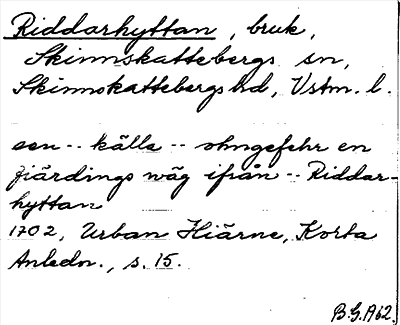 Riddarhyttan, bruk,
Skinnskattebergs sn,
Skinnskattebergs hd, Vstm. l.
een -- källa -- ohngefehr en
fiärdings wäg ifrån -- Riddar-
hyttan
1702, Urban Hiärne, Korta
Anledn., s. 15.
B.G.A62.